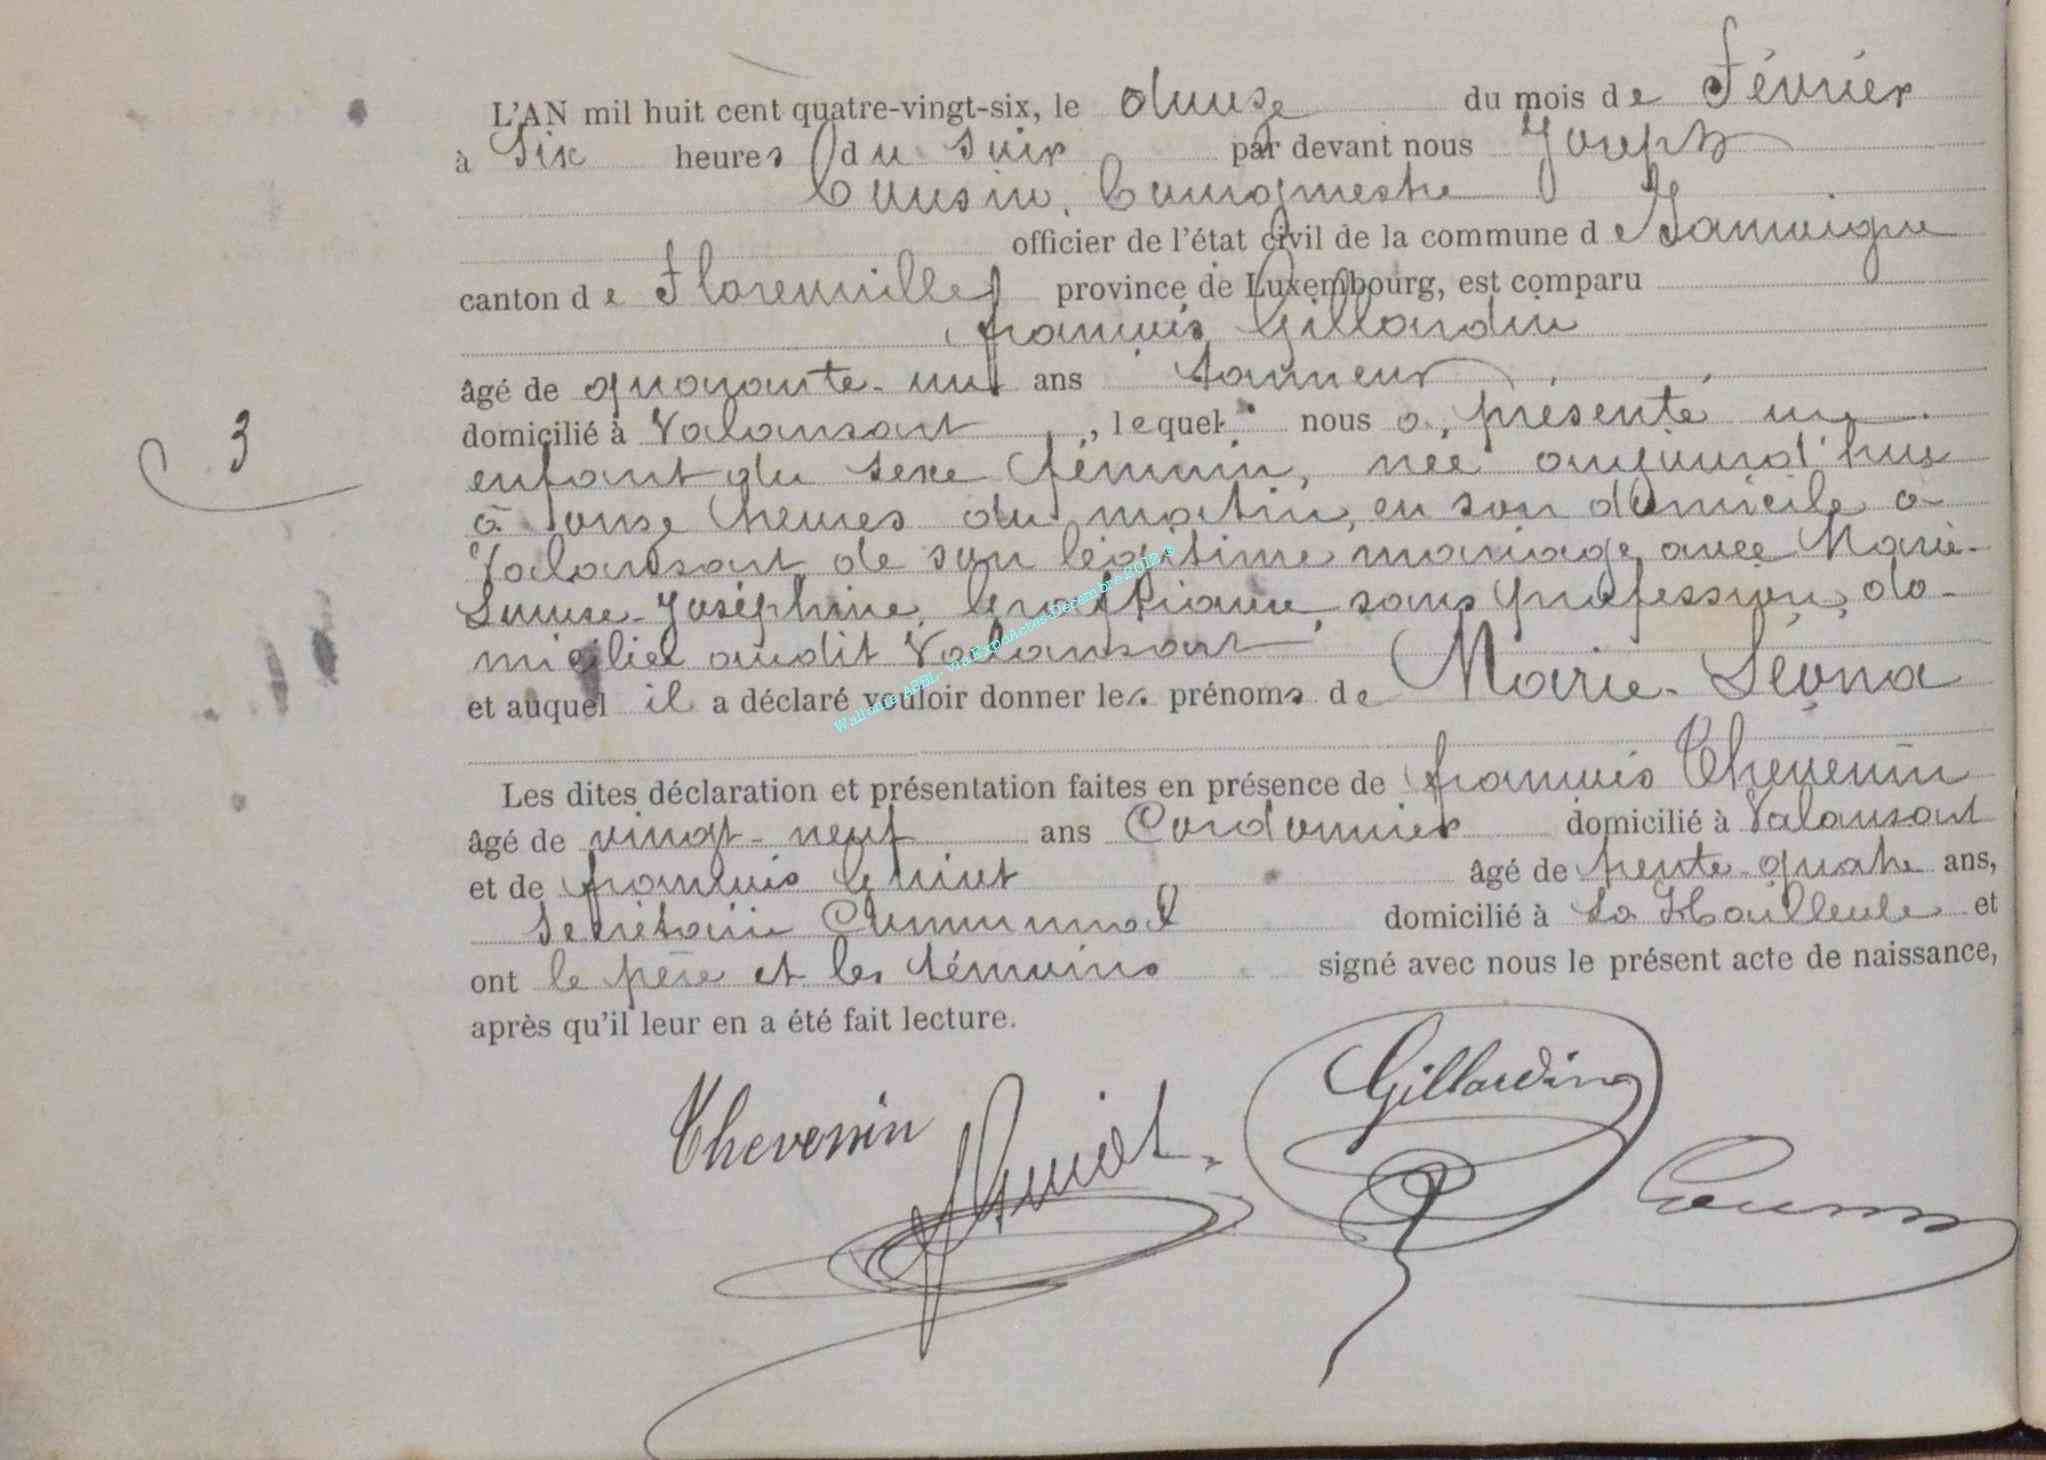 L'AN mil huit cent quatre-vingt-six, le douze du mois de Février
à six heures du soir par devant nous Joseph
Cousin, Bourgmestre
officier de l'état civil de la commune de Jamoigne
canton de Florenville province de Luxembourg, est comparu
françois Gillardin
âgé de quarante-un ans tanneur
domicilié à Valansart, lequel nous a présenté un
3
enfant du sexe féminin, née aujourd'hui
à onze heures du matin, en son domicile à
Valansart de son légitime mariage avec Marie-
Louise-Joséphine, sans profession, do-
miciliée audit Valansart
et auquel il a déclaré vouloir donner les prénoms de Marie-Léona
Les dites déclaration et présentation faites en présence de françois Thevenin
âgé de vingt-neuf ans Cordonnier domicilié à Valansart
et de françois Guiot âgé de trente-quatre ans,
Secrétaire Communal domicilié à La Hailleule et
ont le père et les témoins signé avec nous le présent acte de naissance,
après qu'il leur en a été fait lecture.
Gillardin
Thevenin
Guiot
Cousin
Wallonia ASBL - via ExpoActes Décembre 2013 ©